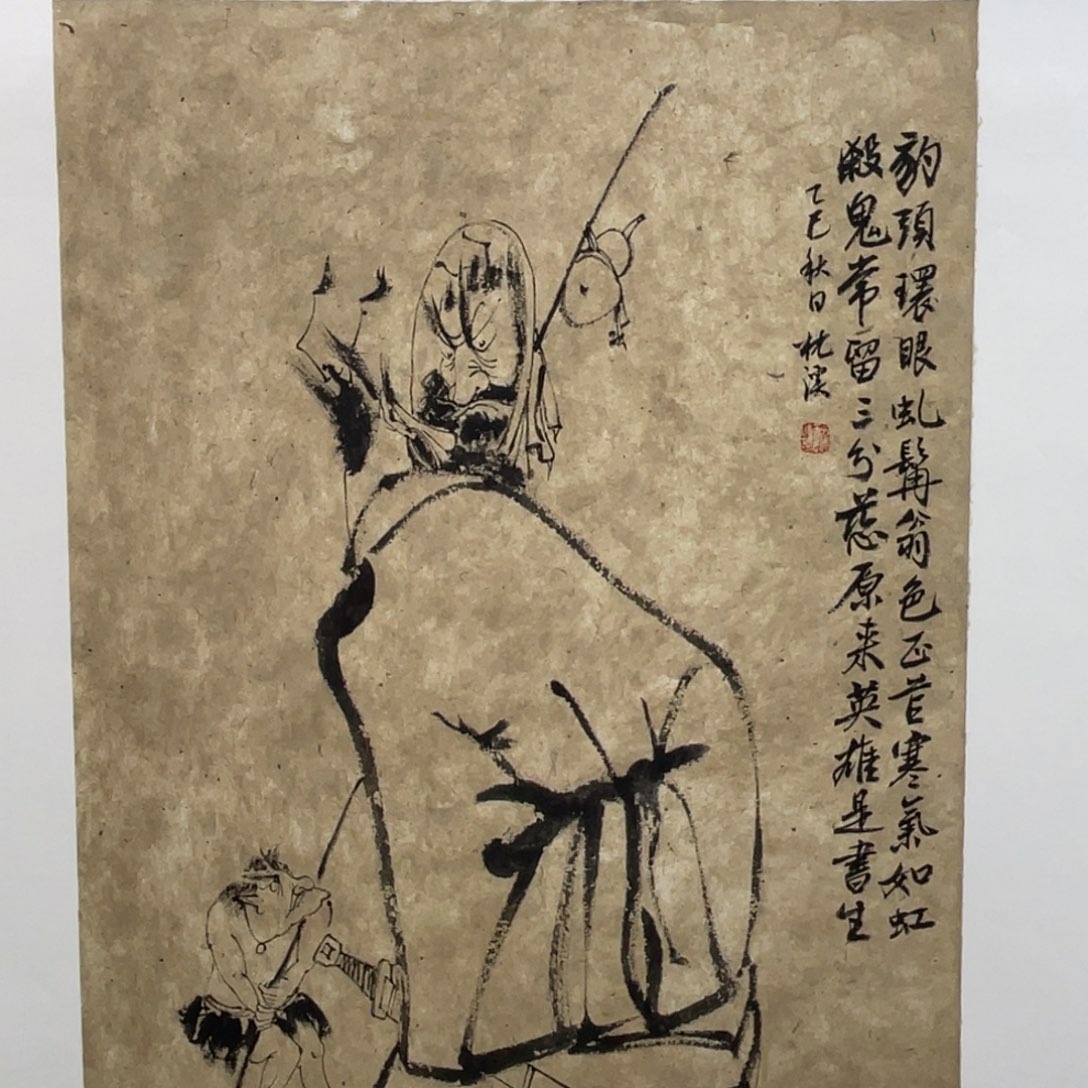 豹頭環眼虬髯翁色正苍寒氣如虹
殺鬼常留三分慈原来英雄是書生
乙巳秋日